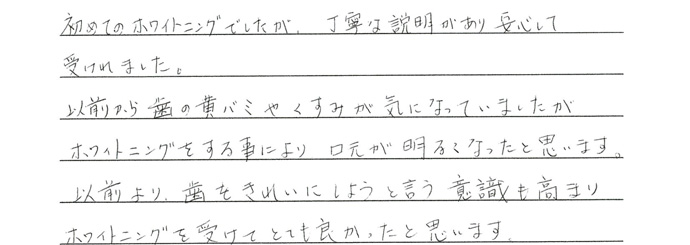 初めてのホワイトニングでしたが、丁寧な説明があり安心して
受けれました。
以前から歯の黄バミやくすみが気になっていましたが
ホワイトニングをする事により口元が明るくなったと思います。
以前より、歯をきれいにしようと言う意識も高まり
ホワイトニングを受けてとても良かったと思います。